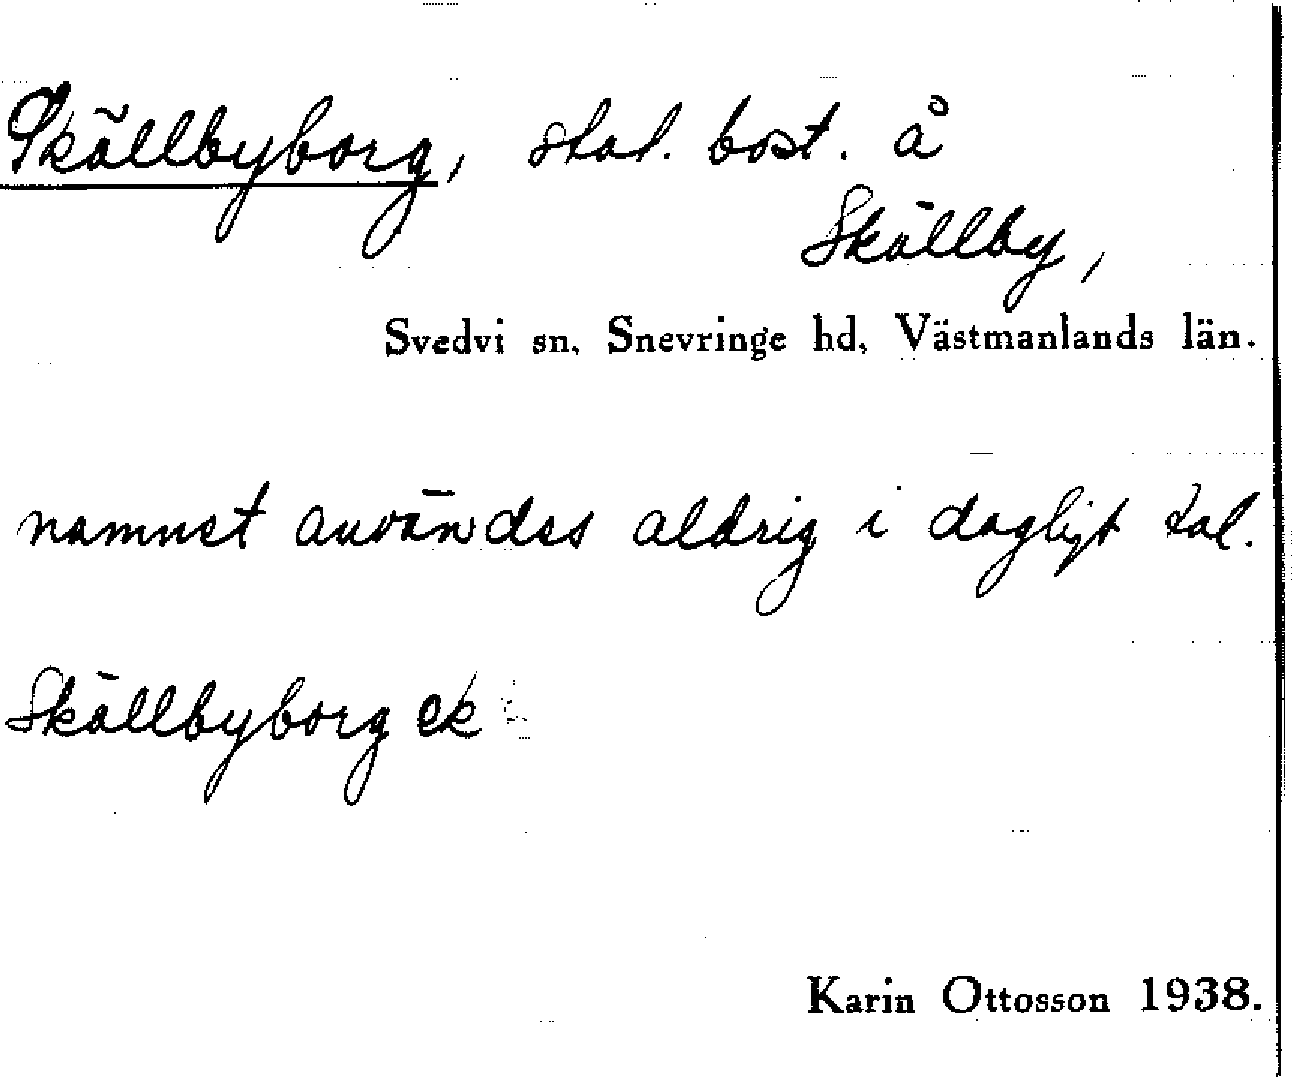 Skällbyborg, stat. bost. å
Skällby,
Svedvi sn, Snevringe hd, Västmanlands län.
namnet användes aldrig i dagligt tal.
Skällbyborg ek
Karin Ottosson 1938.